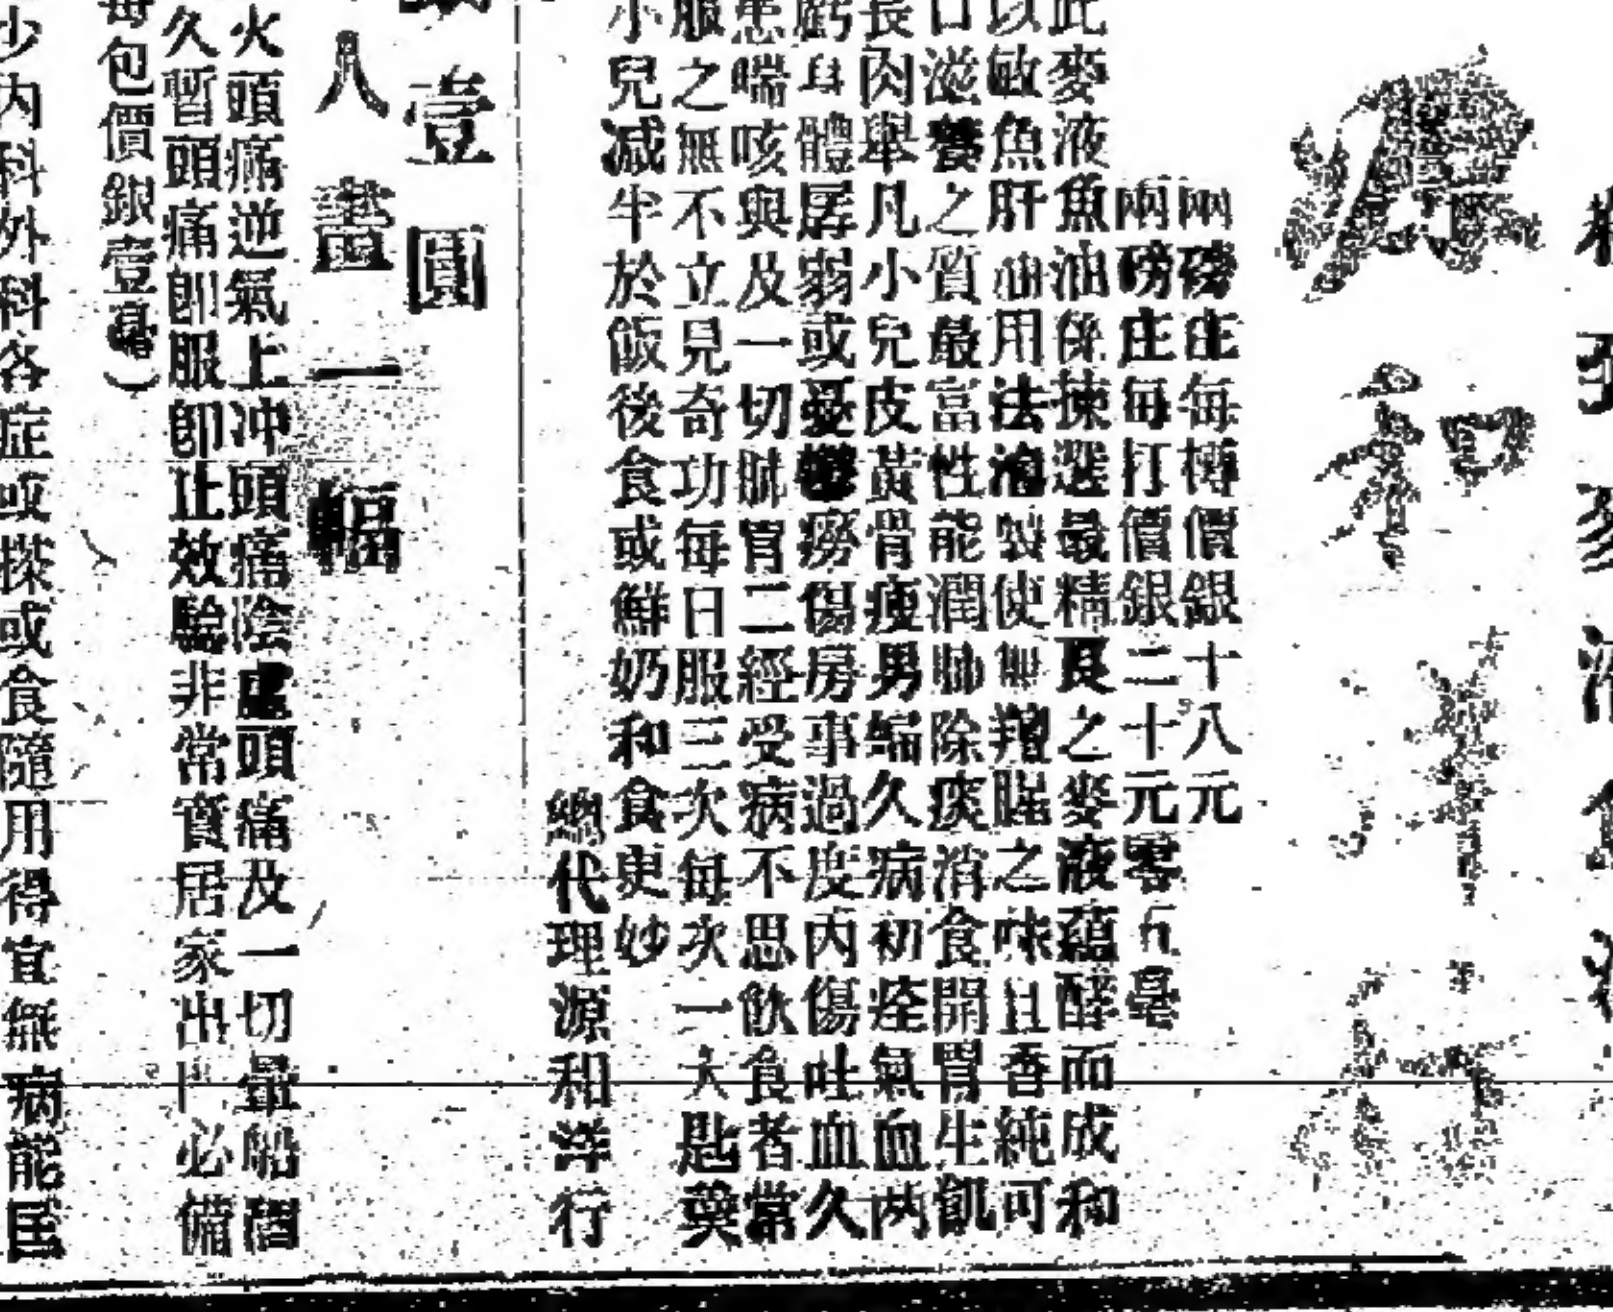 源和洋行
兩磅庄每樽價銀十八元
兩磅庄每打價銀二十元零五毫
此麥液魚油係揀選最精良之麥液蘊醅而成和
以敏魚肝油用法泡製使無羶腥之味且香純可
口滋養之質最富性能潤肺除痰消食開胃生肌
長肉舉凡小兒皮黃骨瘦男婦久病初痊氣血两
虧身體孱弱或憂鬱癆傷房事過度內傷吐血久
患喘咳與及一切肺胃二經受病不思飲食者常
服之無不立見奇功每日服三次每次一大匙藥
小兒减半於飯後食或鮮奶和食更妙
總代理源和洋行
壹圓
人畫一幅
火頭痛逆氣上冲頭痛陰虛頭痛及一切暈船
久暫頭痛卽服卽止效驗非常寶居家出門必備
每包價銀壹毫）
少內科外科各症或搽或食隨用得宜無病能居